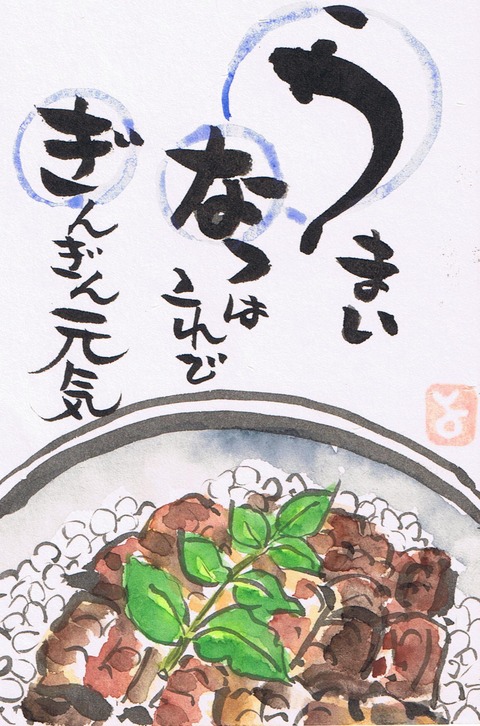 うまい
なつは
これで
ぎんぎん元気